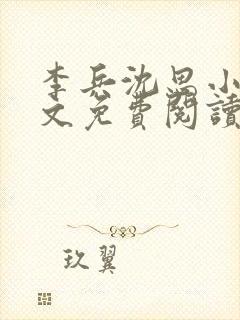 李兵沈思小
文免費閱讀
玖翼